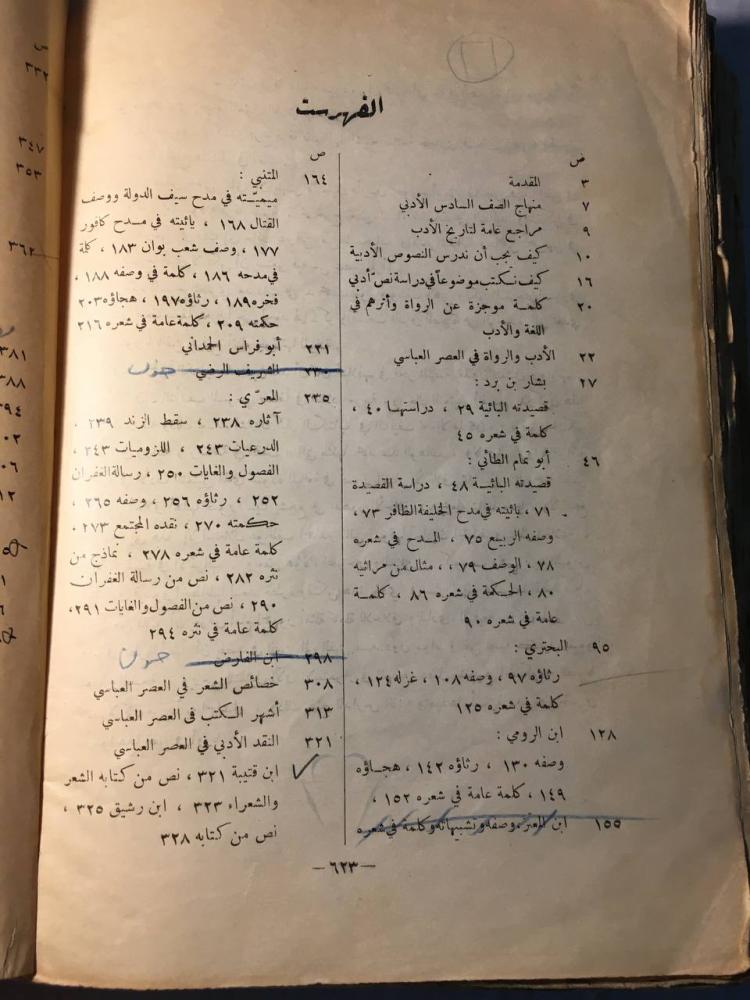 الفهرست
ص
٣ المقدمة
٧ منهاج الصف السادس الأدبي
٩ مراجع عامة لتاريخ الأدب
١٠ كيف يجب أن ندرس النصوص الأدبية
١٦ كيف نكتب موضوعاً في دراسة نصّ أدبي
٢٠ كلمة موجزة عن الرواة وأثرهم في
اللغة والأدب
٢٢ الأدب والرواة في العصر العباسي
٢٧ بشار بن برد :
قصيدته البائية ٢٩ ، دراستها ٤٠ ،
كلمة في شعره ٤٥
٤٦ أبو تمام الطائي :
قصيدته البائية ٤٨ ، دراسة القصيدة
٧١ ، بائيته في مدح الخليفة الظافر ٧٣ ،
وصفه الربيع ٧٥ ، المدح في شعره
٧٨ ، الوصف ٧٩ ، ، مثال من مراثيه
٨٠ ، الحكمة في شعره ٨٦ ، كلمة
عامة في شعره ٩٠
٩٥ البحتري :
رثاؤه ٩٧ ، وصفه ١٠٨ ، غزله ١٢٤ ،
كلمة في شعره ١٢٥
١٢٨ ابن الرومي :
وصفه ١٣٠ ، رثاؤه ١٤٢ ، هجاؤه
١٤٩ ، كلمة عامة في شعره ١٥٢ ،
١٥٥ ابن المعتز وصفه وتشبيهاته وكلمة في شعره
ص
١٦٤ المتنبي :
ميميّته في مدح سيف الدولة ووصف
القتال ١٦٨ ، يائيته في مدح كافور
١٧٧ ، وصف شعب بوان ١٨٣ ، كلمة
في مدحه ١٨٦ ، كلمة في وصفه ١٨٨ ،
فخره ١٨٩ ، رثاؤه ١٩٧ ، هجاؤه ٢٠٣
حكمته ٢٠٩ ، كلمة عامة في شعره ٢١٦
٢٢١ أبو فراس الحمداني
٢٣٠ الشريف الرضي
٢٣٥ المعرّي :
آثاره ٢٣٨ ، سقط الزند ٢٣٩ ،
الدرعيات ٢٤٣ ، اللزوميات ٢٤٣ ،
الفصول والغايات ٢٥٠ ، رسالة الغفران
٢٥٢ ، رثاؤه ٢٥٦ ، وصفه ٢٦٥ ،
حكمته ٢٧٠ ، نقده المجتمع ٢٧٣ ،
كلمة عامة في شعره ٢٧٨ ، نماذج من
نثره ٢٨٢ ، نص من رسالة الغفران
٢٩٠ ، نص من الفصول والغايات ٢٩١ ،
كلمة عامة في نثره ٢٩٤
٢٩٨ ابن الفارض
٣٠٨ خصائص الشعر في العصر العباسي
٣١٣ أشهر الكتب في العصر العباسي
٣٢١ النقد الأدبي في العصر العباسي
ابن قتيبة ٣٢١ ، نص من كتابه الشعر
والشعراء ٣٢٣ ، ابن رشيق ٣٢٥ ،
نص من كتابه ٣٢٨
— ٦٢٣ —